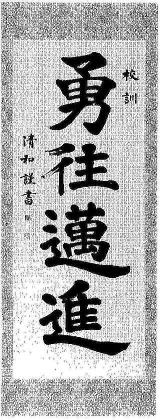 校訓
勇往邁進
清和謹書